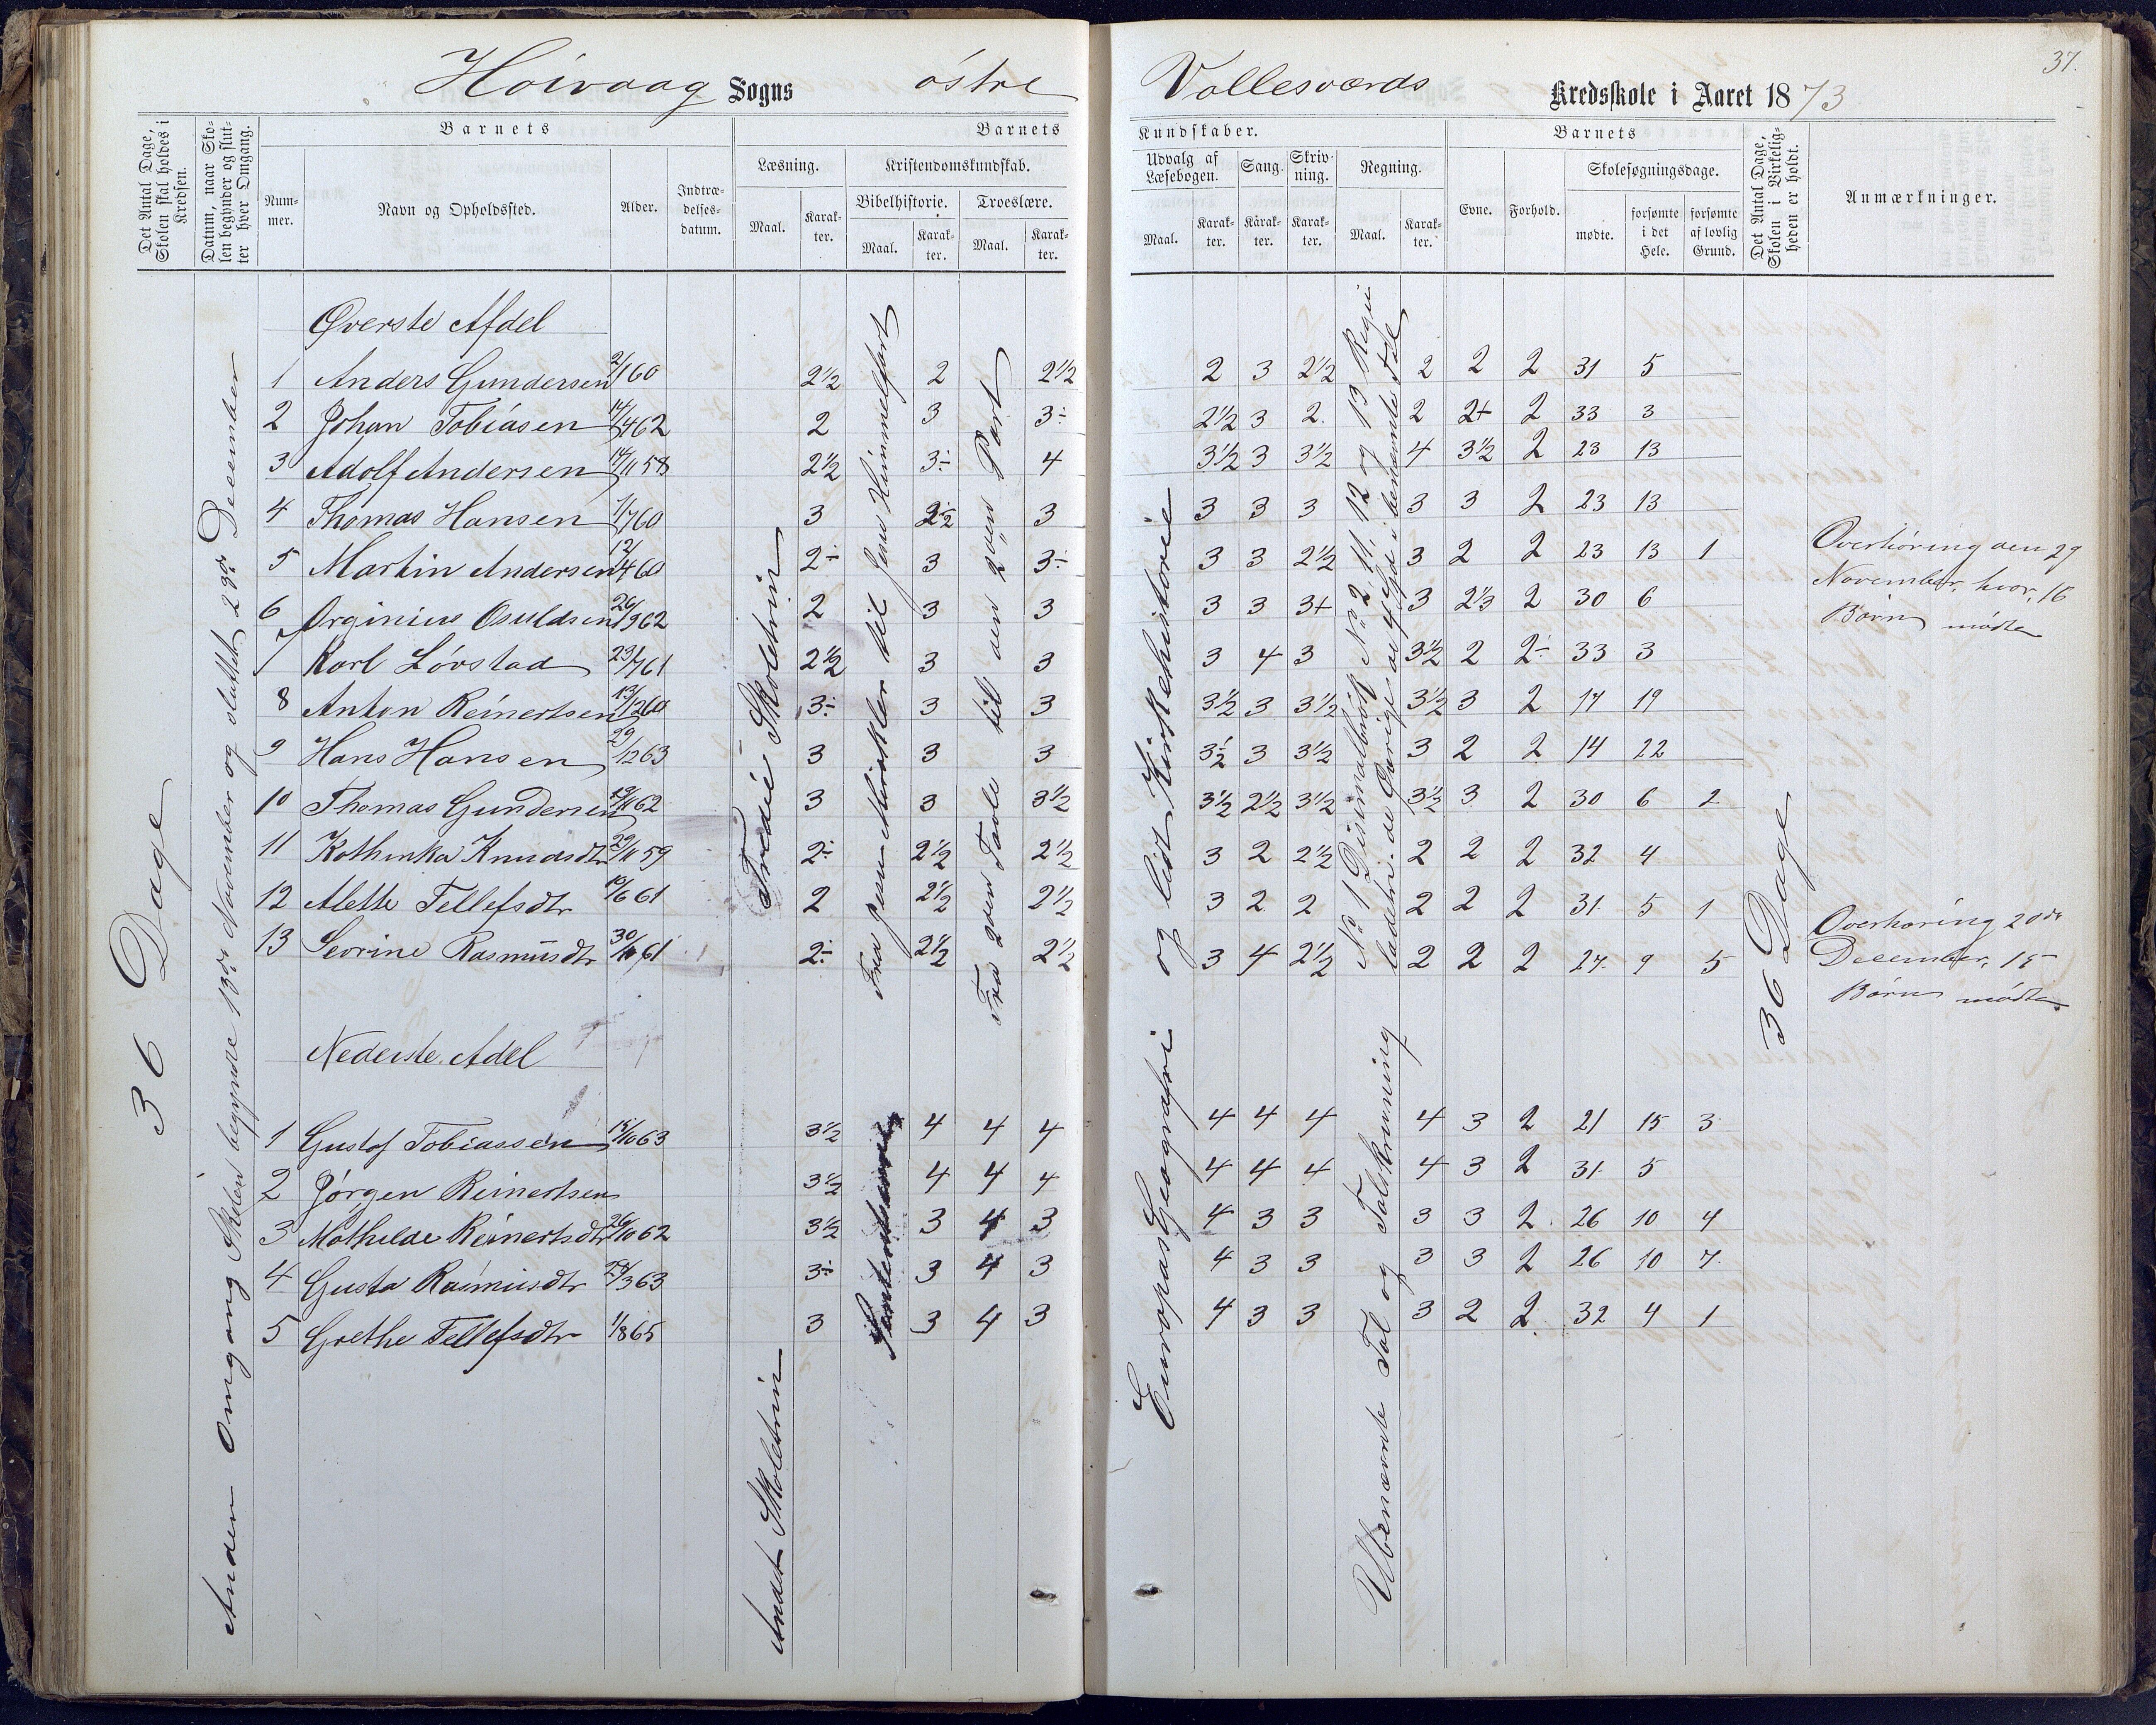 37.
Høivaag Sogns østre Vallesværds Kredsskole i Aaret 1873
Det Antal Dage, Skolen skal holdes i Kredsen.
Datum, naar Skolen begynder og slutter hver Omgang.
Barnets
Nummer.
Navn og Opholdssted.
Alder.
Indtrædelsesdatum.
Barnets Kundskaber.
Læsning.
Maal.
Karakter.
Kristendomskundskab.
Bibelhistorie.
Maal.
Karakter.
Troeslære.
Maal.
Karakter.
Udvalg af Læsebogen.
Maal.
Karakter.
Sang.
Karakter.
Skrivning.
Karakter.
Regning.
Maal.
Karakter.
Barnets
Evne.
Forhold.
Skolesøgningsdage.
mødte.
forsømte i det Hele.
forsømte af lovlig Grund.
Det Antal Dage, Skolen i Virkeligheden er holdt.
Anmærkninger.
36 Dage
Anden Omgang Skolen begyndte 13de November og sluttet 29de December
Øverste Afdel
1 Anders Gundersen 2/1 60 2½ 2 2½ 2 3 2½ 2 2 2 31 5
2 Johan Tobiasen 14/4 62 2 3 3÷ 2½ 3 2 2 2+ 2 33 3
3 Adolf Andersen 14/11 58 2½ 3÷ 4 3½ 3 3½ 4 3½ 2 23 13
4 Thomas Hansen 1/7 60 3 2½ 3 3 3 3 3 3 2 23 13
5 Martin Andersen 12/4 60 2÷ 3 3÷ 3 3 2½ 3 2 2 23 13 1
6 Orginius Osuldsen 26/9 62 2 3 3 3 3 3+ 3 2⅓ 2 30 6
7 Karl Løvstad 23/7 61 2½ 3 3 3 4 3 3½ 2 2÷ 33 3
8 Anton Reinertsen 13/12 60 3÷ 3 3 3½ 3 3½ 3½ 3 2 17 19
9 Hans Hansen 29/12 63 3 3 3 3½ 3 3½ 3 2 2 14 22
10 Thomas Gundersen 19/11 62 3 3 3½ 3½ 2½ 3½ 3½ 3 2 30 6 2
11 Kathinka Knudsdtr 29/11 59 2÷ 2½ 2½ 3 2 2½ 2 2 2 32 4
12 Alette Tellefsdtr 10/6 61 2 2½ 2½ 3 2 2 2 2 2 31 5 1
13 Sevrine Rasmusdtr 30/10 61 2÷ 2½ 2½ 3 4 2½ 2 2 2 27 9 5
Tredie Skoletrin
Fra Jesu Mirakler til Jesu Himmelfart
Fra 2den Tavle til den 2den Part
Europas Geografi og lidt Kirkehistorie
No 1 Desimalbrøk No 2, 11, 12 og 13 Regu
ladetri. de Øvrige de 4 Gd i benævnte Tal
36 Dage
Overhøring den 29
November, hvor 16
Børn mødte
Overhøring 20de
December, 15
Børn mødte
Nederste Adel
1 Gustaf Tobiassen 15/10 63 3½ 4 4 4 4 4 4 4 3 2 21 15 3
2 Jørgen Reinertsen 3½ 4 4 4 4 4 4 4 3 2 31 5
3 Mathilde Reinertsdtr 26/10 62 3½ 3 4 3 4 3 3 3 3 2 26 10 4
4 Gusta Rasmusdtr 24/3 63 3÷ 3 4 3 4 3 3 3 3 2 26 10 7
5 Grethe Tellefsdtr 1/8 65 3 3 4 3 4 3 3 3 2 2 32 4 1
Andet Skoletrin
Ubenævnte Tal og Talskrivning